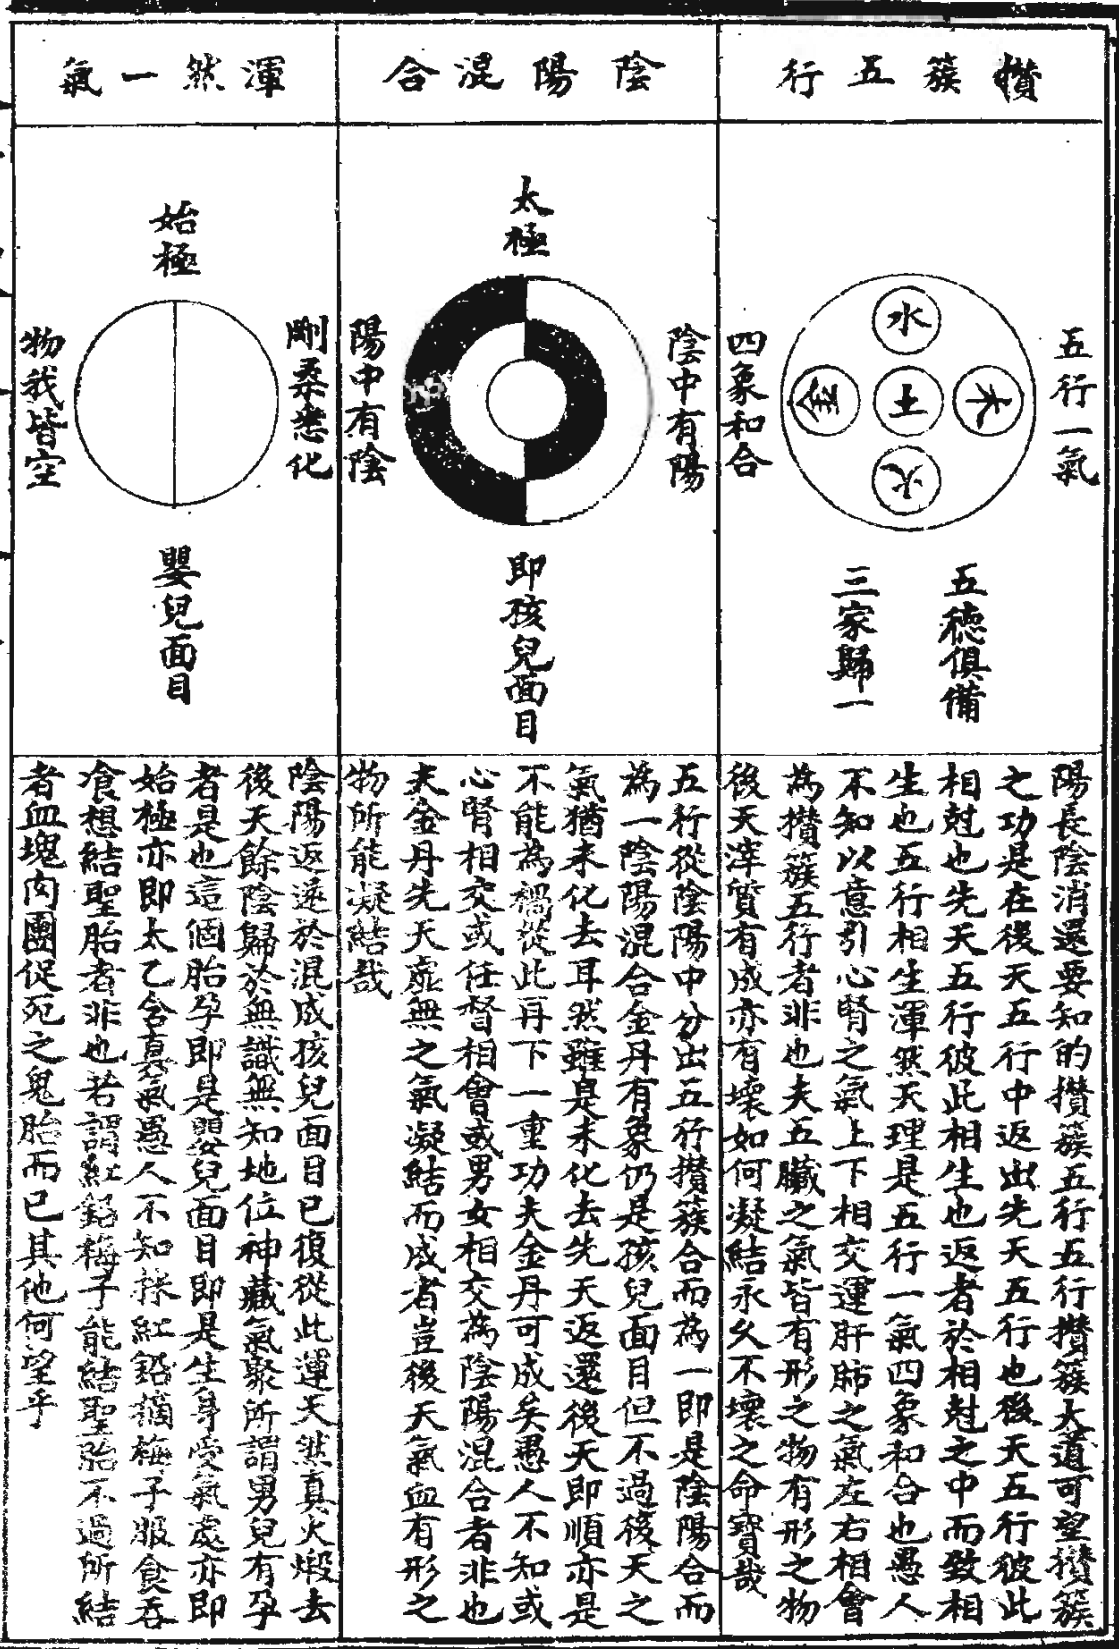 攢簇五行
五行一氣
水
木
土
金
火
四象和合
五德俱備
三家歸一
陽長陰消還要知的攢簇五行五行攢簇大道可望攢簇
之功是在後天五行中返出先天五行也後天五行彼此
相尅也先天五行彼此相生也返者於相尅之中而致相
生也五行相生渾然天理是五行一氣四象和合也愚人
不知以意引心腎之氣上下相交運肝肺之氣左右相會
為攢簇五行者非也夫五臟之氣皆有形之物有形之物
後天滓質有成亦有壞如何凝結永久不壞之命寶哉
陰陽混合
太極
陰中有陽
陽中有陰
即孩兒面目
五行從陰陽中分出五行攢簇合而為一即是陰陽合而
為一陰陽混合金丹有象仍是孩兒面目但不過後天之
氣猶未化去耳然雖是未化去先天返還後天即順亦是
不能為禍從此再下一重功夫金丹可成矣愚人不知或
心腎相交或任督相會或男女相交為陰陽混合者非也
夫金丹先天虛無之氣凝結而成者豈後天氣血有形之
物所能凝結哉
渾然一氣
始極
剛柔悉化
物我皆空
嬰兒面目
陰陽返還於混成孩兒面目已復從此運天然真火煅去
後天餘陰歸於無識無知地位神藏氣聚所謂男兒有孕
者是也這個胎孕即是嬰兒面目即是生身受氣處亦即
始極亦即太乙含真氣愚人不知採紅鉛摘梅子服食吞
飡想結聖胎者非也若謂紅鉛梅子能結聖胎不過所結
者血塊肉團促死之鬼胎而已其他何望乎